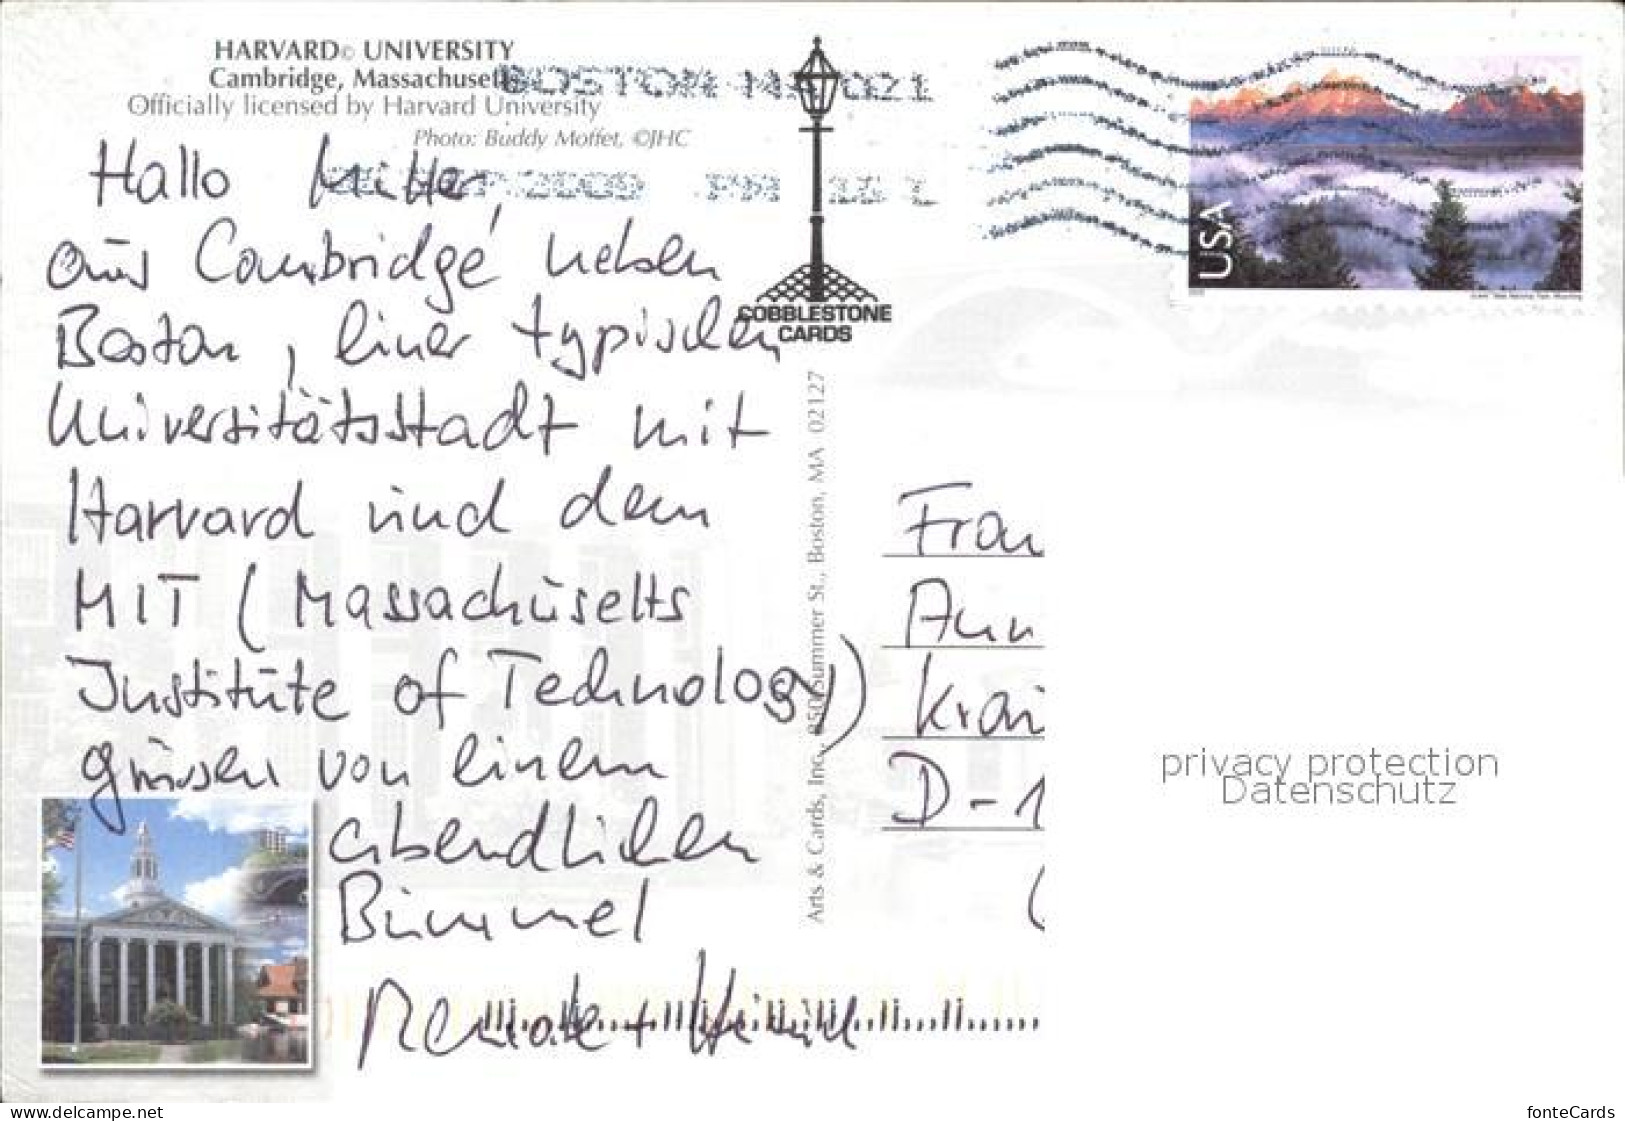 HARVARD© UNIVERSITY
Cambridge, Massachusetts
Officially licensed by Harvard University
Photo: Buddy Moffet, ©JHC
BOSTON MA 021
2009 PM
USA
COBBLESTONE
CARDS
Arts & Cards, Inc., 850 Summer St., Boston, MA 02127
Hallo Mutter,
aus Cambridge neben
Boston, einer typischen
Universitätsstadt mit
Harvard und dem
MIT (Massachusetts
Institute of Technology)
grüssen von einem
abendlichen
Bummel
Renate +
Frau
Ann
Krai
D-1
privacy protection
Datenschutz
www.delcampe.net
fonteCards